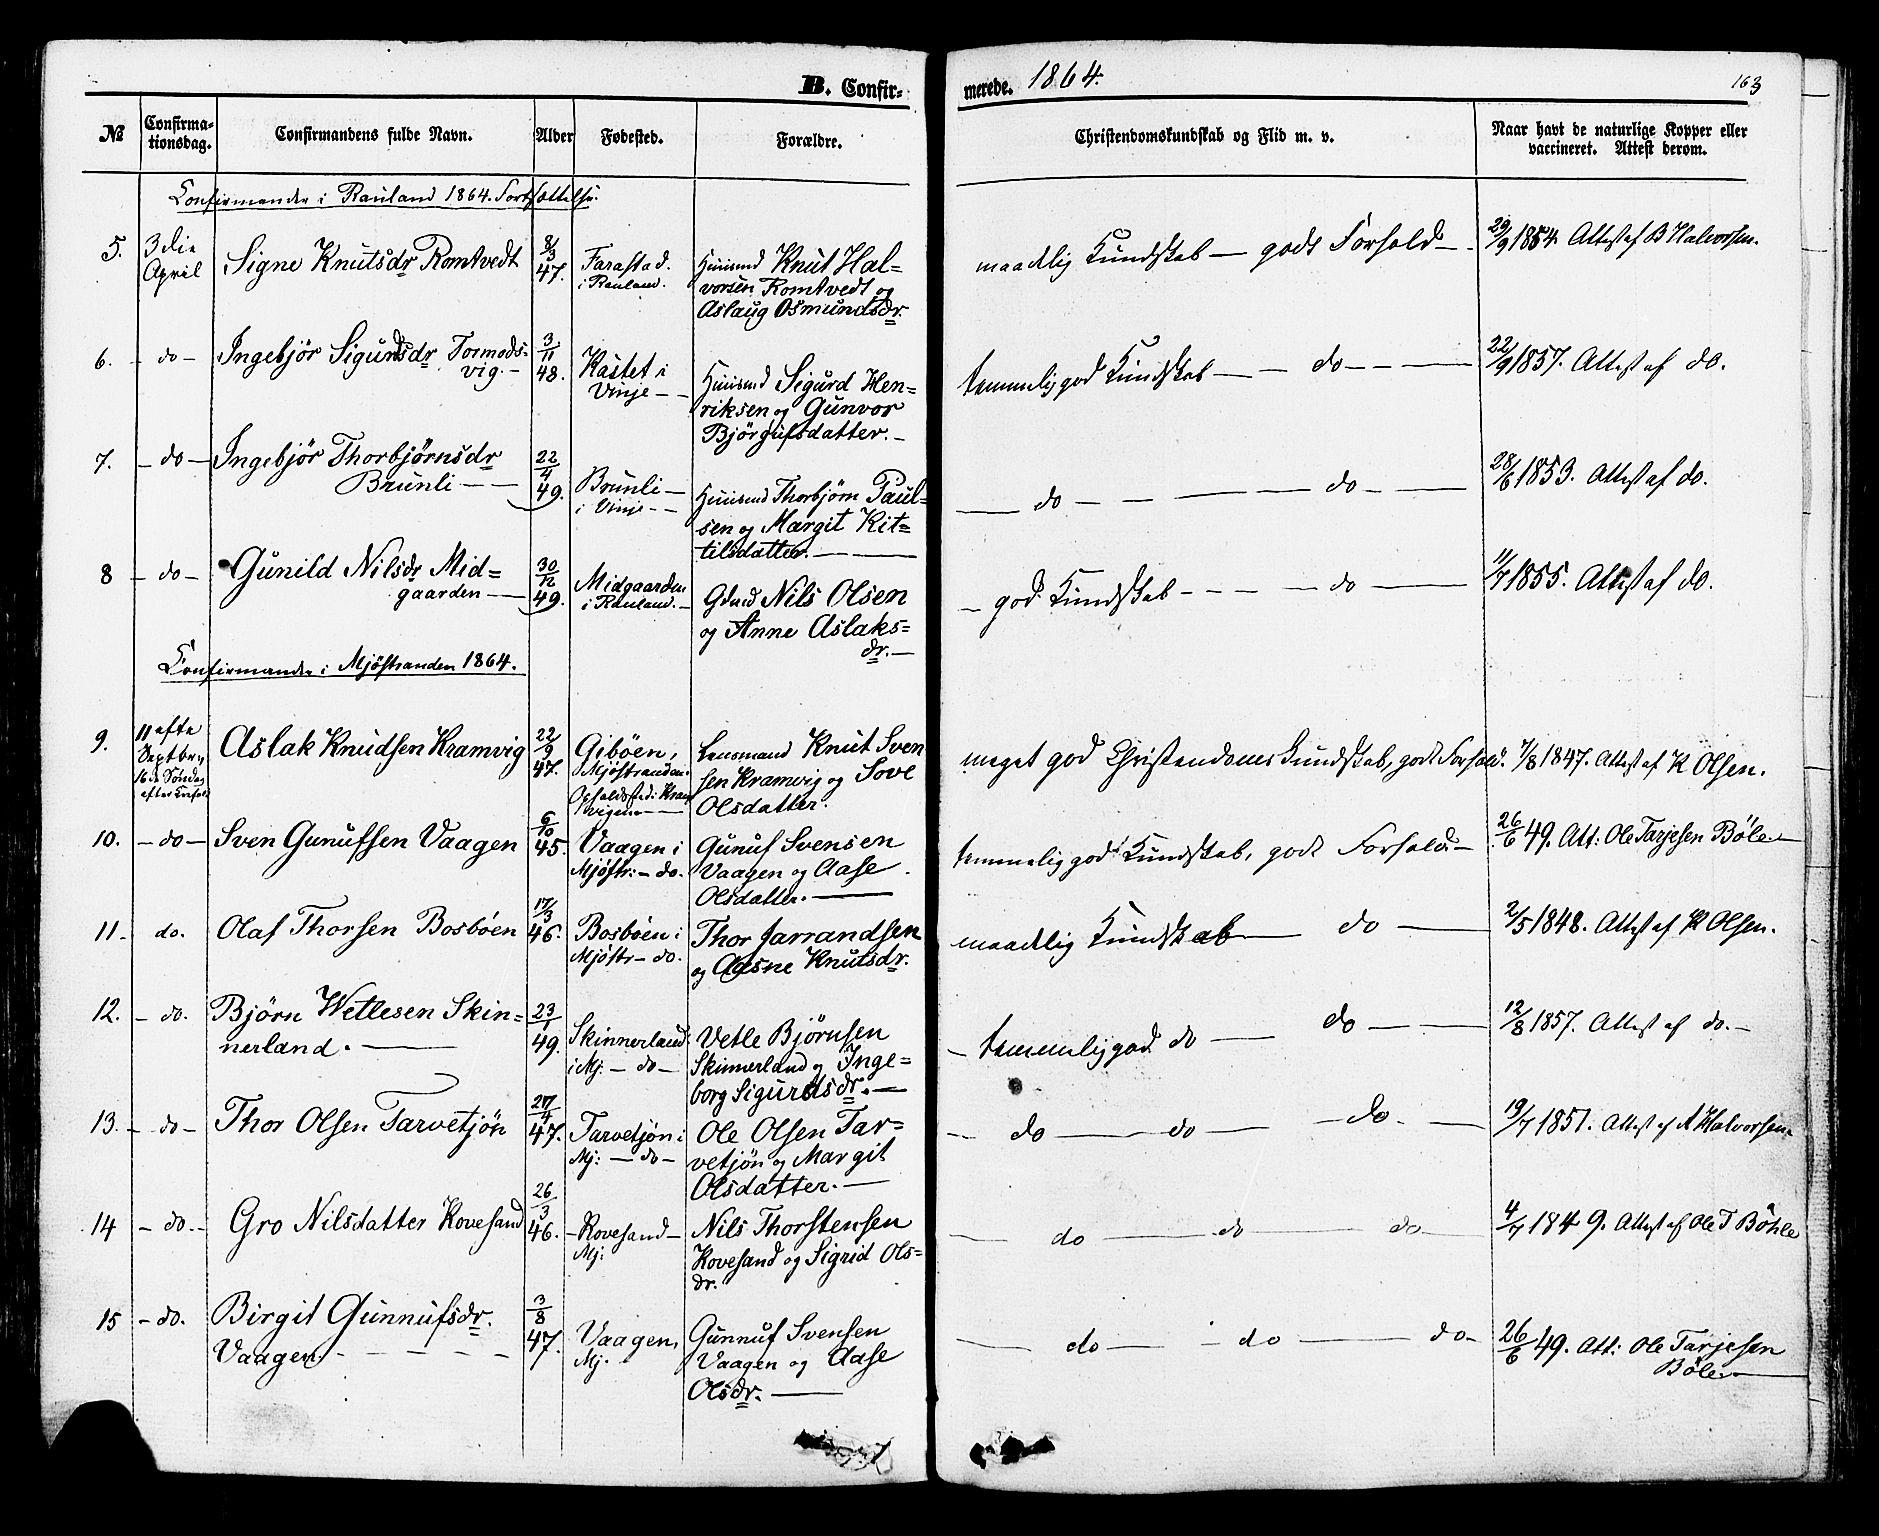 B. Confir-
merede. 1864.
163
№
Confirma-
tionsdag.
Confirmandens fulde Navn.
Alder
Fødested.
Forældre.
Christendomskundskab og Flid m. v.
Naar havt de naturlige Kopper eller
vaccineret. Attest derom.
Confirmander i Rauland 1864. Fortsættelse.
5.
3die
April
Signe Knutsdr Romtvedt
8/3
47.
Farastad.
i Rauland.
Huusmd Knut Hal=
vorsen Romtvedt og
Aslaug Osmundsdr.
maadelig Kundskab — godt Forhold —
29/9 1854 Attest af B Halvorsen.
6.
– do –
Ingebjör Sigurdsdr Tormods=
vig. –
3/11
48.
Kastet i
Vinje – –
Huusmd Sigurd Hen=
riksen og Gunvor
Bjørgufsdatter. –
temmelig god Kundskab — – do – – –
22/9 1857. Attest af do.
7.
– do –
Ingebjör Thorbjørnsdr
Brunli – –
22/4
49.
Brunli –
i Vinje – –
Huusmd Thorbjørn Paul=
sen og Margit Kit=
tilsdatter. –
— do – – — — do – —
28/6 1853. Attest af do.
8
– do –
Gunild Nilsdr Mid=
gaarden –
30/12
49.
Midgaarden
i Rauland. –
Gdmd Nils Olsen
og Anne Aslaks=
dr. –
– god Kundskab – – – – do – —
11/7 1855. Attest af do.
Confirmander i Mjöstranden 1864.
9.
11 efte
Septbr,
16de Søndag
efter Trefold
Aslak Knudsen Kramvig
22/9
47.
Gibøen,
Mjöstranden.
Opholdssted: Kram
vigen –
Lensmand Knut Sven
sen Kramvig og Sove
Olsdatter.
meget god Christendomskundskab, godt Forhold.
7/8 1847. Attest af K Olsen.
10.
– do –
Sven Gunufsen Vaagen
6/10
45.
Vaagen i
Mjöstr: – do.
Gunuf Svensen
Vaagen og Aase
Olsdatter. —
temmelig god Kundskab, godt Forhold –
26/6 49. Att: Ole Tarjesen Böle –
11 –
do.
Olaf Thorsen Bosbøen
17/3
46.
Bosbøen i
Mjöstr – do.
Thor Jarrandsen
og Aasne Knutsdr.
maadelig Kundskab — do —
2/5 1848. Attest af K Olsen.
12.
– do.
Bjørn Wetlesen Skin=
nerland. —
23/1
49.
Skinnerland
i Mj: – do –
Vetle Bjørnsen
Skinnerland og Inge=
borg Sigurdsdr. –
– temmelig god do — do – —
12/8 1857. Attest af do. –
13. –
do –
Thor Olsen Tarvetjön
27/4
47.
Tarvetjøn i
Mj: – do –
Ole Olsen Tar=
vetjön og Margit
Olsdatter. –
— do — do — – do –
19/7 1851. Attest af A Halvorsen
14
– do. –
Gro Nilsdatter Kovesand
26/3
46.
– Kovesand –
Mj:
Nils Thorstensen
Kovesand og Sigrid Ols=
dr.
— do — do — do —
4/7 1849. Attest af Ole T Böhle
15
– do.
Birgit Gunnufsdr.
Vaagen. – – – – –
3/8
47.
Vaagen,
Mj.
Gunnuf Svensen
Vaagen og Aase
Olsdr. —
— do — – do — do –
26/6 49. Att: Ole Tarjesen
Böle. —